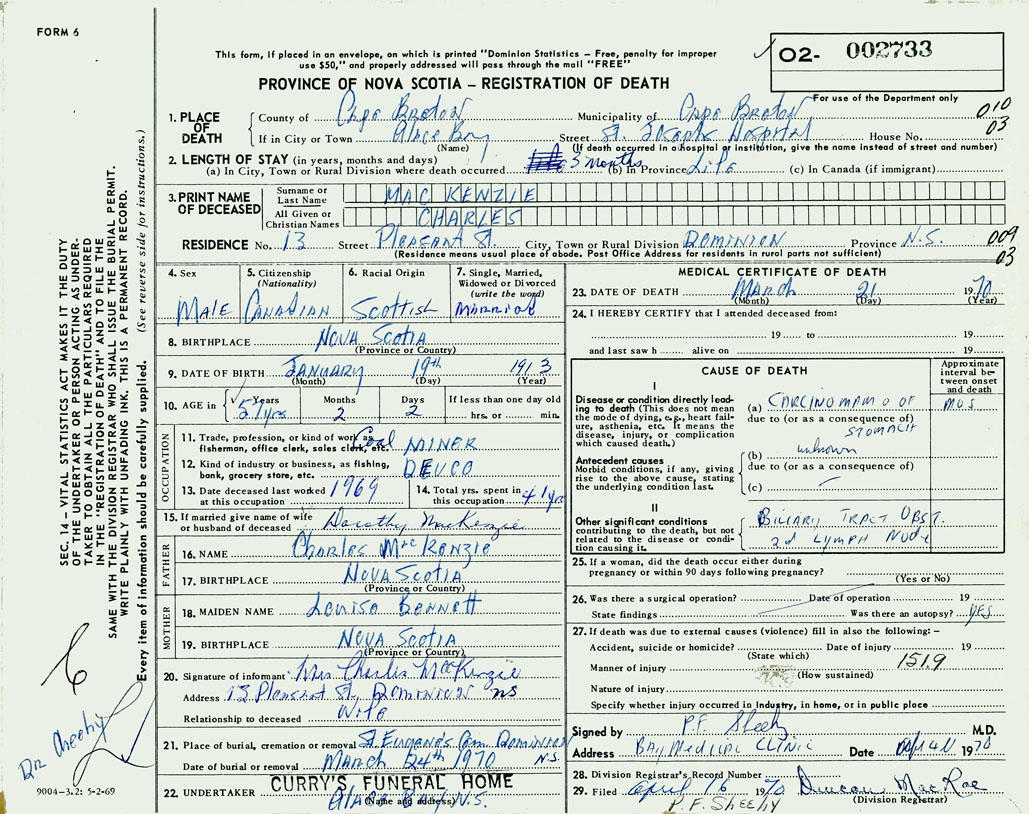 FORM 6
This form, if placed in an envelope, on which is printed "Dominion Statistics – Free, penalty for improper
use $50," and properly addressed will pass through the mail "FREE"
O2- 002733
PROVINCE OF NOVA SCOTIA – REGISTRATION OF DEATH
For use of the Department only
1. PLACE OF DEATH
County of Cape Breton Municipality of Cape Breton 010
If in City or Town Glace Bay Street St. Josephs Hospital House No. 03
(Name) (If death occurred in a hospital or institution, give the name instead of street and number)
2. LENGTH OF STAY (in years, months and days)
(a) In City, Town or Rural Division where death occurred 3 months (b) In Province Life (c) In Canada (if immigrant)
3. PRINT NAME OF DECEASED
Surname or Last Name MAC KENZIE
All Given or Christian Names CHARLES
RESIDENCE No. 13 Street Pleasant St. City, Town or Rural Division DOMINION Province N.S. 009
(Residence means usual place of abode. Post Office Address for residents in rural parts not sufficient) 03
4. Sex
Male
5. Citizenship
(Nationality)
Canadian
6. Racial Origin
Scottish
7. Single, Married,
Widowed or Divorced
(write the word)
Married
8. BIRTHPLACE Nova Scotia
(Province or Country)
9. DATE OF BIRTH January 19th 1913
(Month) (Day) (Year)
10. AGE in
Years Months Days If less than one day old
57 yrs 2 2 hrs. or min.
OCCUPATION
11. Trade, profession, or kind of work as
fisherman, office clerk, sales clerk, etc. Coal MINER
12. Kind of industry or business, as fishing,
bank, grocery store, etc. DEVCO
13. Date deceased last worked
at this occupation 1969
14. Total yrs. spent in
this occupation 41 yrs
15. If married give name of wife
or husband of deceased Dorothy MacKenzie
FATHER
16. NAME Charles MacKenzie
17. BIRTHPLACE Nova Scotia
(Province or Country)
MOTHER
18. MAIDEN NAME Louisa Bennett
19. BIRTHPLACE Nova Scotia
(Province or Country)
20. Signature of informant Mrs Charles MacKenzie
Address 13 Pleasant St, Dominion NS
Relationship to deceased Wife
21. Place of burial, cremation or removal St Eugene's Cem. Dominion
Date of burial or removal March 24th 1970 N.S.
CURRY'S FUNERAL HOME
22. UNDERTAKER Glace Bay N.S.
(Name and address)
MEDICAL CERTIFICATE OF DEATH
23. DATE OF DEATH March 21 1970
(Month) (Day) (Year)
24. I HEREBY CERTIFY that I attended deceased from:
19 to 19
and last saw h alive on 19
CAUSE OF DEATH
Approximate
interval be-
tween onset
and death
I
Disease or condition directly lead-
ing to death (This does not
mean the mode of dying, e.g., heart fail-
ure, asthenia, etc. It means the
disease, injury, or complication
which caused death.)
(a) CARCINOMA OF
due to (or as a consequence of)
STOMACH
MOS
Antecedent causes
Morbid conditions, if any, giving
rise to the above cause, stating
the underlying condition last.
(b) unknown
due to (or as a consequence of)
(c)
II
Other significant conditions
contributing to the death, but not
related to the disease or condi-
tion causing it.
BILIARY TRACT OBST.
2d LYMPH NODE
25. If a woman, did the death occur either during
pregnancy or within 90 days following pregnancy?
(Yes or No)
26. Was there a surgical operation? Date of operation 19
State findings Was there an autopsy? YES
27. If death was due to external causes (violence) fill in also the following: –
Accident, suicide or homicide? Date of injury 19
(State which) 151.9
Manner of injury
(How sustained)
Nature of injury
Specify whether injury occurred in industry, in home, or in public place
Signed by P.F. Sheehy M.D.
Address BAY MEDICAL CLINIC Date 1970
28. Division Registrar's Record Number
29. Filed April 16 1970 Duncan MacRae
P.F. SHEEHY (Division Registrar)
SEC. 14 – VITAL STATISTICS ACT MAKES IT THE DUTY
OF THE UNDERTAKER OR PERSON ACTING AS UNDER-
TAKER TO OBTAIN ALL THE PARTICULARS REQUIRED
IN THE "REGISTRATION OF DEATH" AND TO FILE THE
SAME WITH THE DIVISION REGISTRAR WHO SHALL ISSUE THE BURIAL PERMIT.
WRITE PLAINLY WITH UNFADING INK. THIS IS A PERMANENT RECORD.
Every item of information should be carefully supplied. (See reverse side for instructions.)
Dr
9004-3.2: 5-2-69